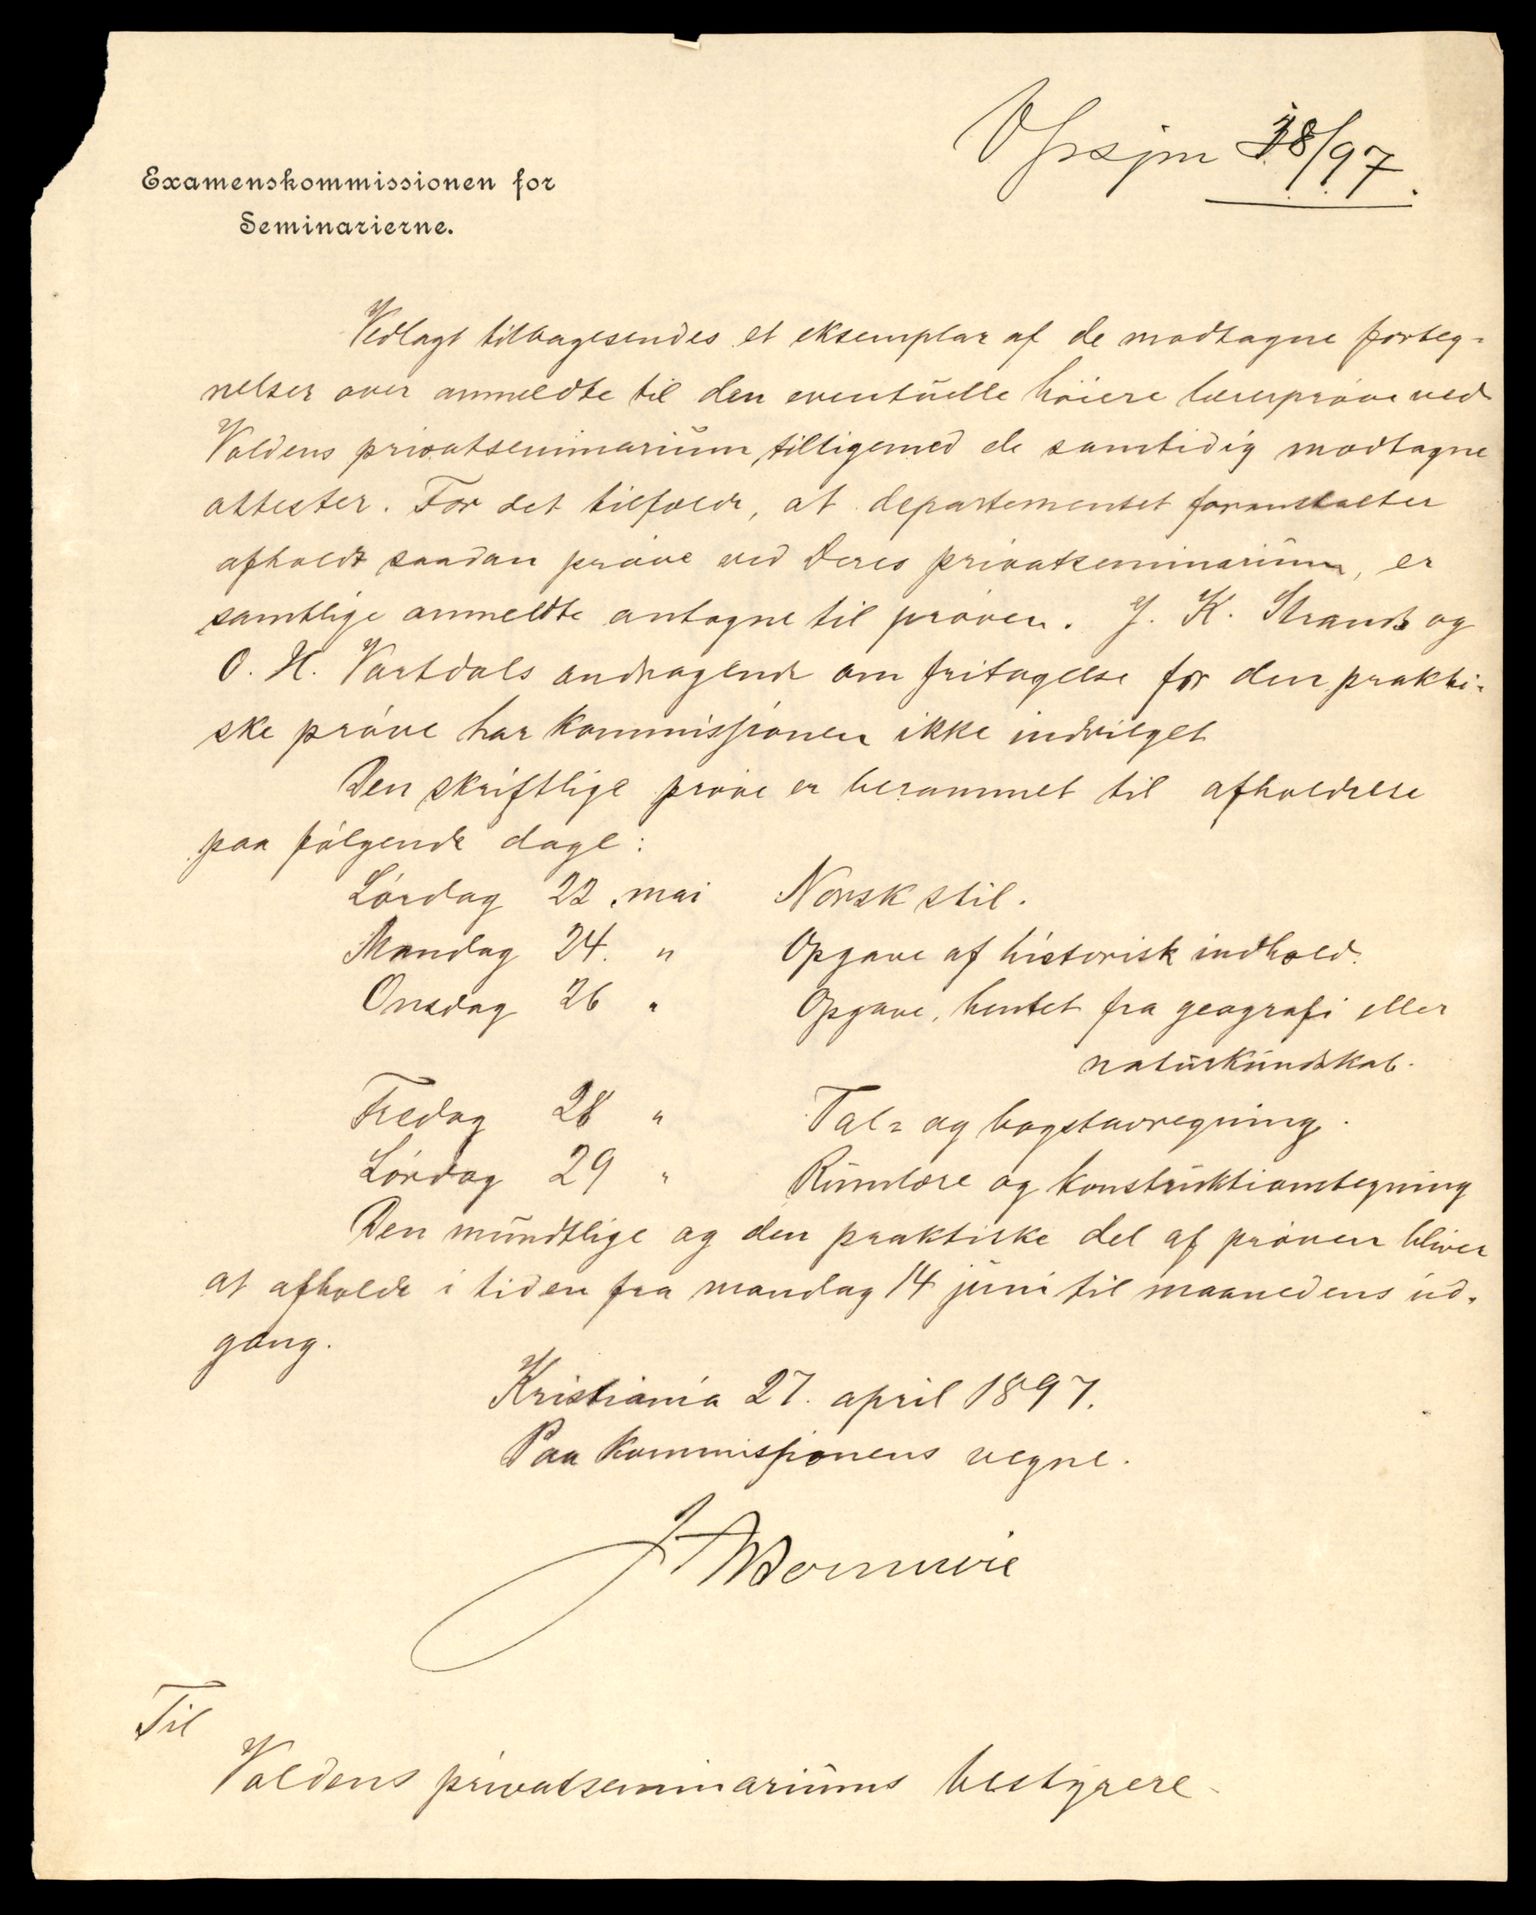 Examenskommissionen for
Seminarierne.
18/97.
Vedlagt tilbagesendes et eksemplar af de modtagne forteg-
nelser over anmeldte til den eventuelle höiere lærerpröve ved
Voldens privatseminarium, tilligemed de samtidig modtagne
attester. For det tilfælde, at departementet foranstalter
afholdt saadan pröve ved Deres privatseminarium, er
samtlige anmeldte antagne til pröven. J. K. Strand og
O. H. Vartdals andragende om fritagelse for den prakti-
ske pröve har kommissionen ikke indvilget
Den skriftlige pröve er berammet til afholdelse
paa fölgende dage:
Lördag 22. mai Norsk stil.
Mandag 24. " Opgave af historisk indhold.
Onsdag 26 " Opgave, hentet fra geografi eller
naturkundskab.
Fredag 28 " Tal- og bogstavregning.
Lördag 29 " Rumlære og konstruktionstegning
Den mundtlige og den praktiske del af pröven bliver
at afholde i tiden fra mandag 14 juni til maanedens ud-
gang.
Kristiania 27. april 1897.
Paa kommissionens vegne.
Til
Voldens privatseminariums bestyrere.